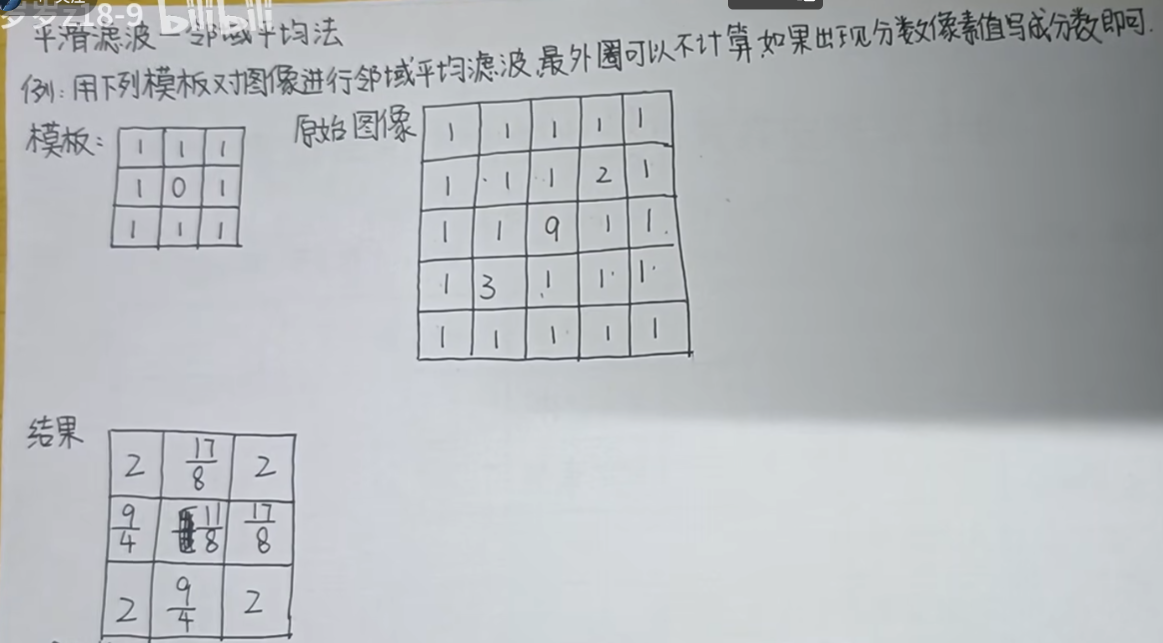 岁岁218-9 bilibili
平滑滤波-邻域平均法
例:用下列模板对图像进行邻域平均滤波,最外圈可以不计算,如果出现分数像素值写成分数即可.
模板:
1 1 1
1 0 1
1 1 1
原始图像
1 1 1 1 1
1 1 1 2 1
1 1 9 1 1
1 3 1 1 1
1 1 1 1 1
结果
2 17/8 2
9/4 11/8 17/8
2 9/4 2